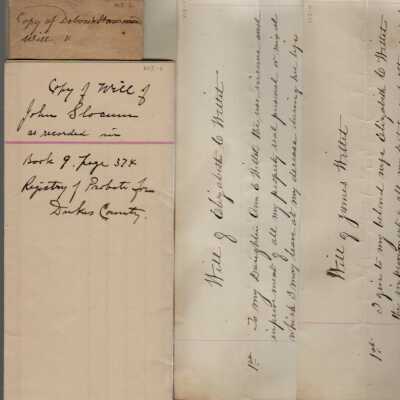 Copy of
Will
Copy of Will of
John Slocum
as recorded in
Book 9. Page 374
Registry of Probate for
Dukes County.
Will of Elizabeth C Willet
1st To my Daughter Ann C Willet the use income and
improvement of all my property real personal or mixed
which I may leave at my decease during her life
Will of James Willet
1st I give to my beloved wife Elizabeth C Willet
the use improvement of all my